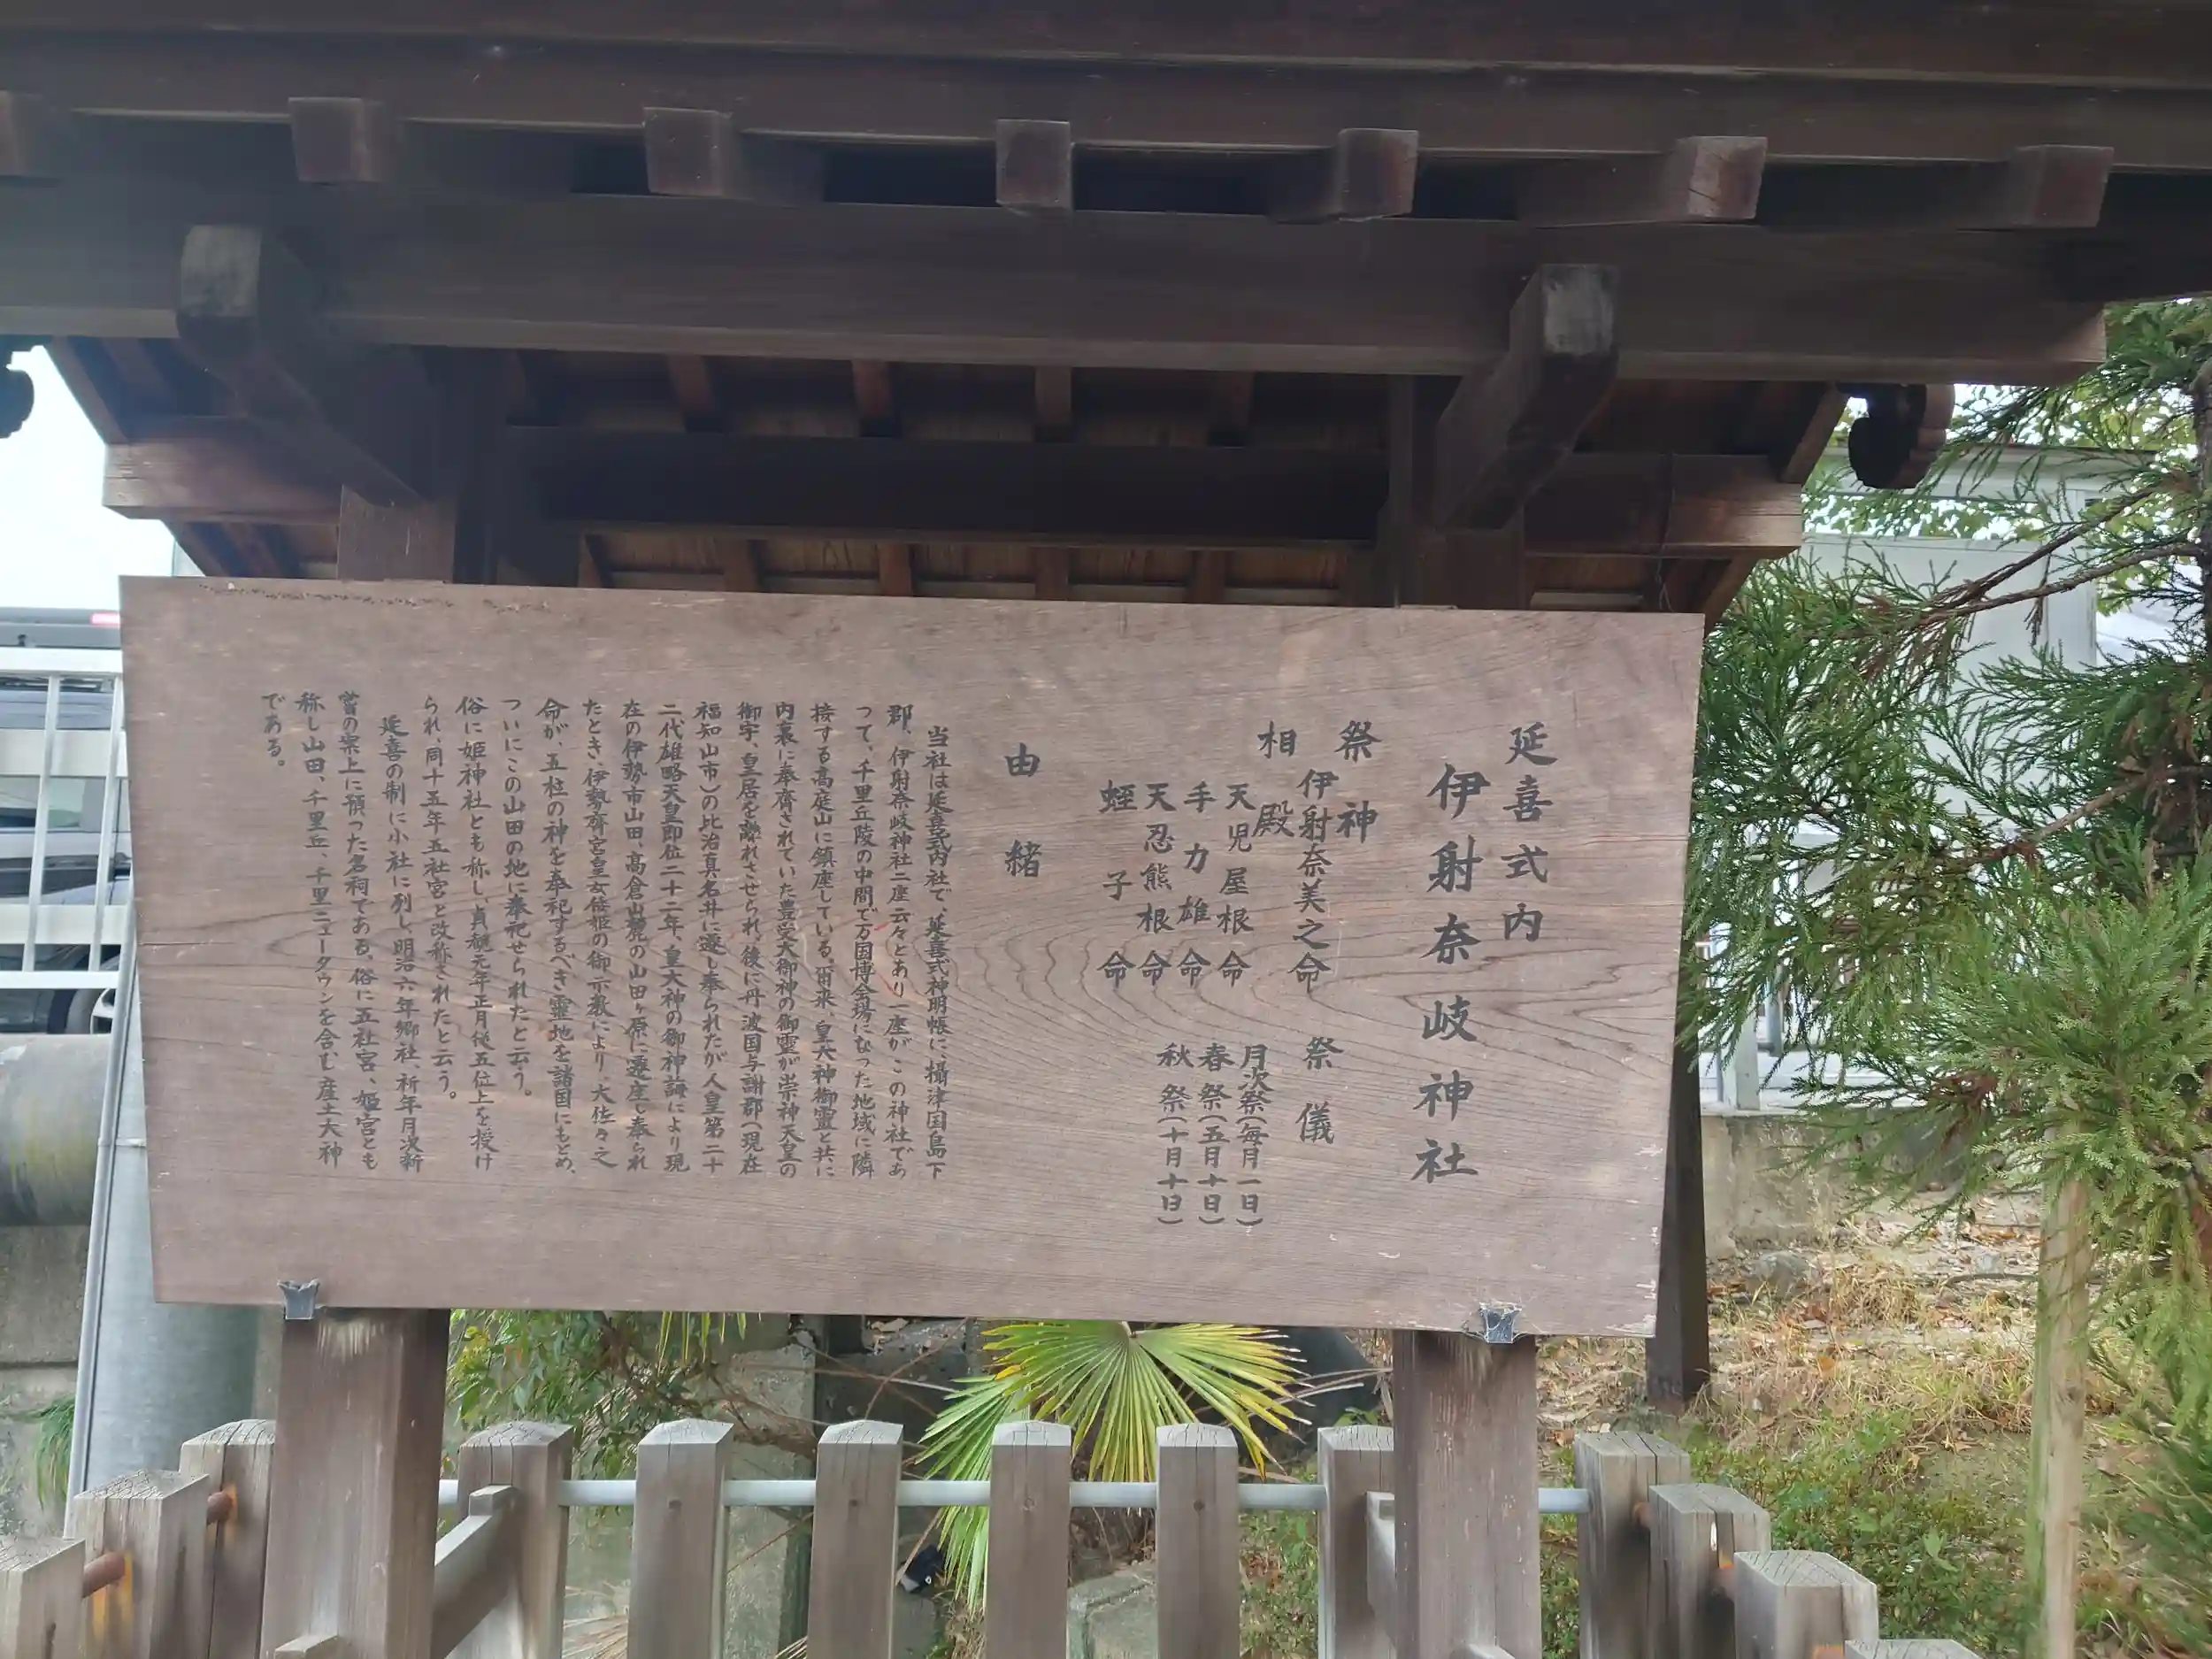 延喜式内
伊射奈岐神社
祭神
伊射奈美之命
相殿
天児屋根命
手力雄命
天忍熊根命
蛭子命
祭儀
月次祭(毎月一日)
春祭(五月十日)
秋祭(十月十日)
由緒
当社は延喜式内社で、延喜式神明帳に、摂津国島下
郡、伊射奈岐神社二座云々とあり一座がこの神社であ
って、千里丘陵の中間で万国博会場になった地域に隣
接する高庭山に鎮座している。爾来、皇大神御霊と共に
内裏に奉齋されていた豊受大御神の御霊が崇神天皇の
御宇、皇居を離れさせられ、後に丹波国与謝郡(現在
福知山市)の比治真名井に遷し奉られたが人皇第二十
二代雄略天皇即位二十二年、皇大神の御神誨により現
在の伊勢市山田、高倉山麓の山田ヶ原に遷座し奉られ
たとき、伊勢齋宮皇女倭姫の御示教により、大佐々之
命が、五柱の神を奉祀するべき霊地を諸国にもとめ、
ついにこの山田の地に奉祀せられたと云う。
俗に姫神社とも称し、貞観元年正月従五位上を授け
られ、同十五年五社宮と改称されたと云う。
延喜の制に小社に列し、明治六年郷社、祈年月次新
嘗の案上に預った名祠である。俗に五社宮、姫宮とも
称し山田、千里丘、千里ニュータウンを含む産土大神
である。